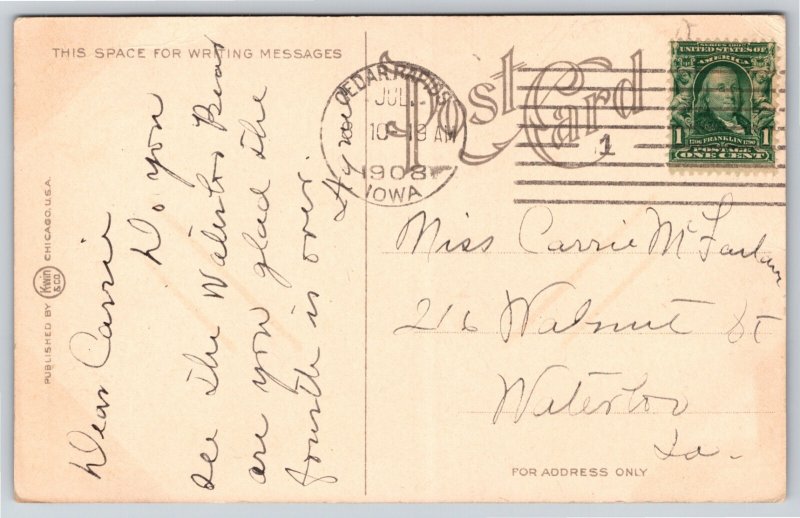 THIS SPACE FOR WRITING MESSAGES
POST CARD
CEDAR RAPIDS
JUL
10 AM
1908
IOWA
1
SERIES 1902
UNITED STATES OF
AMERICA
1 FRANKLIN 1790
1706
POSTAGE
ONE CENT
Dear Carrie
Do you
see the Waterloo Bear
are you glad the
fourth is over.
Miss Carrie McFarlane
216 Walnut St
Waterloo
Ia.
FOR ADDRESS ONLY
PUBLISHED BY KWIN & CO. CHICAGO, U.S.A.